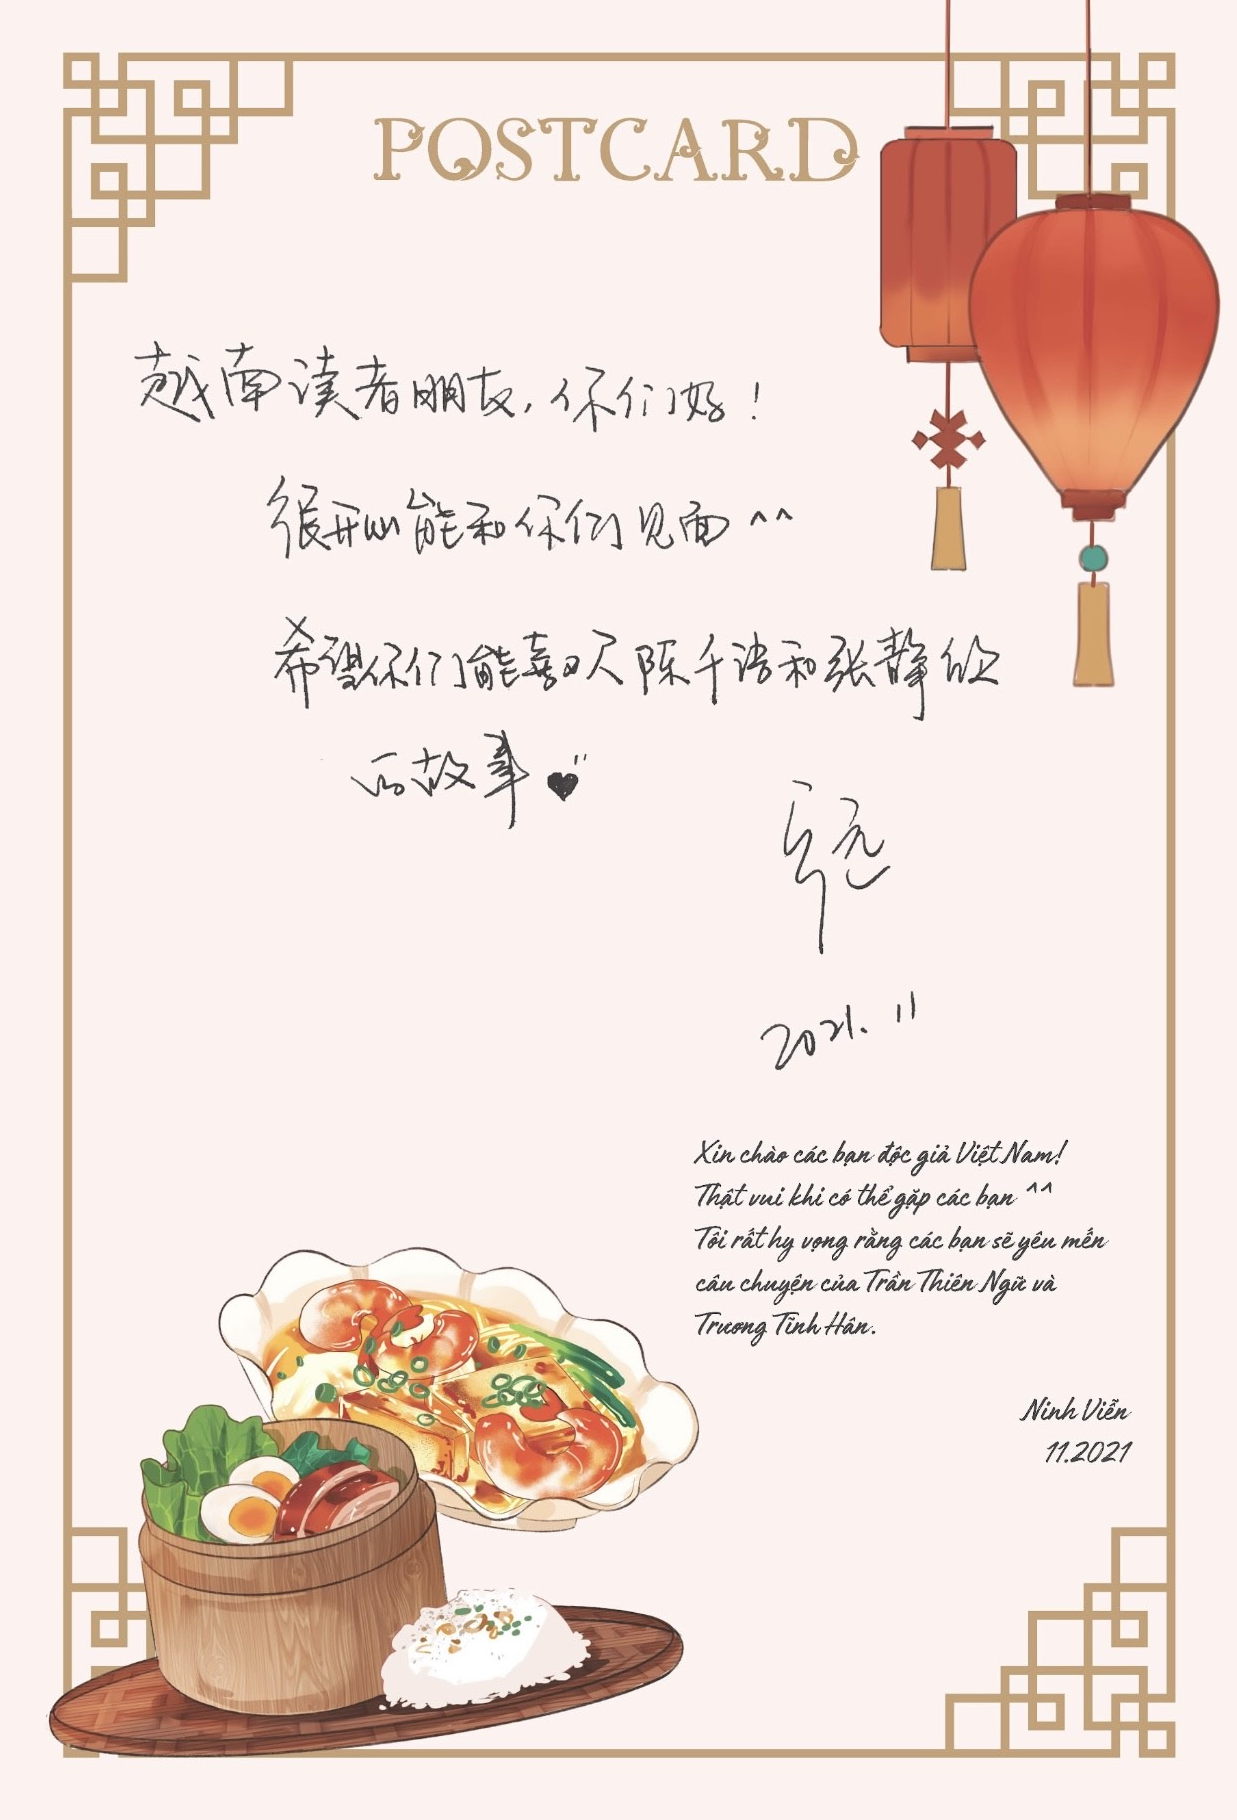 POSTCARD
越南读者朋友,你们好!
很开心能和你们见面 ^^
希望你们能喜欢陈千语和张静欣
的故事 ♥
宁远
2021. 11
Xin chào các bạn độc giả Việt Nam!
Thật vui khi có thể gặp các bạn ^^
Tôi rất hy vọng rằng các bạn sẽ yêu mến
câu chuyện của Trần Thiên Ngữ và
Trương Tĩnh Hân.
Ninh Viễn
11.2021